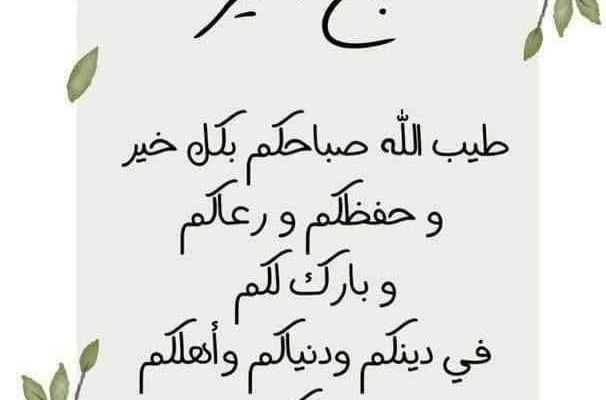 طيب الله صباحكم بكل خير
و حفظكم و رعاكم
و بارك لكم
في دينكم ودنياكم وأهلكم